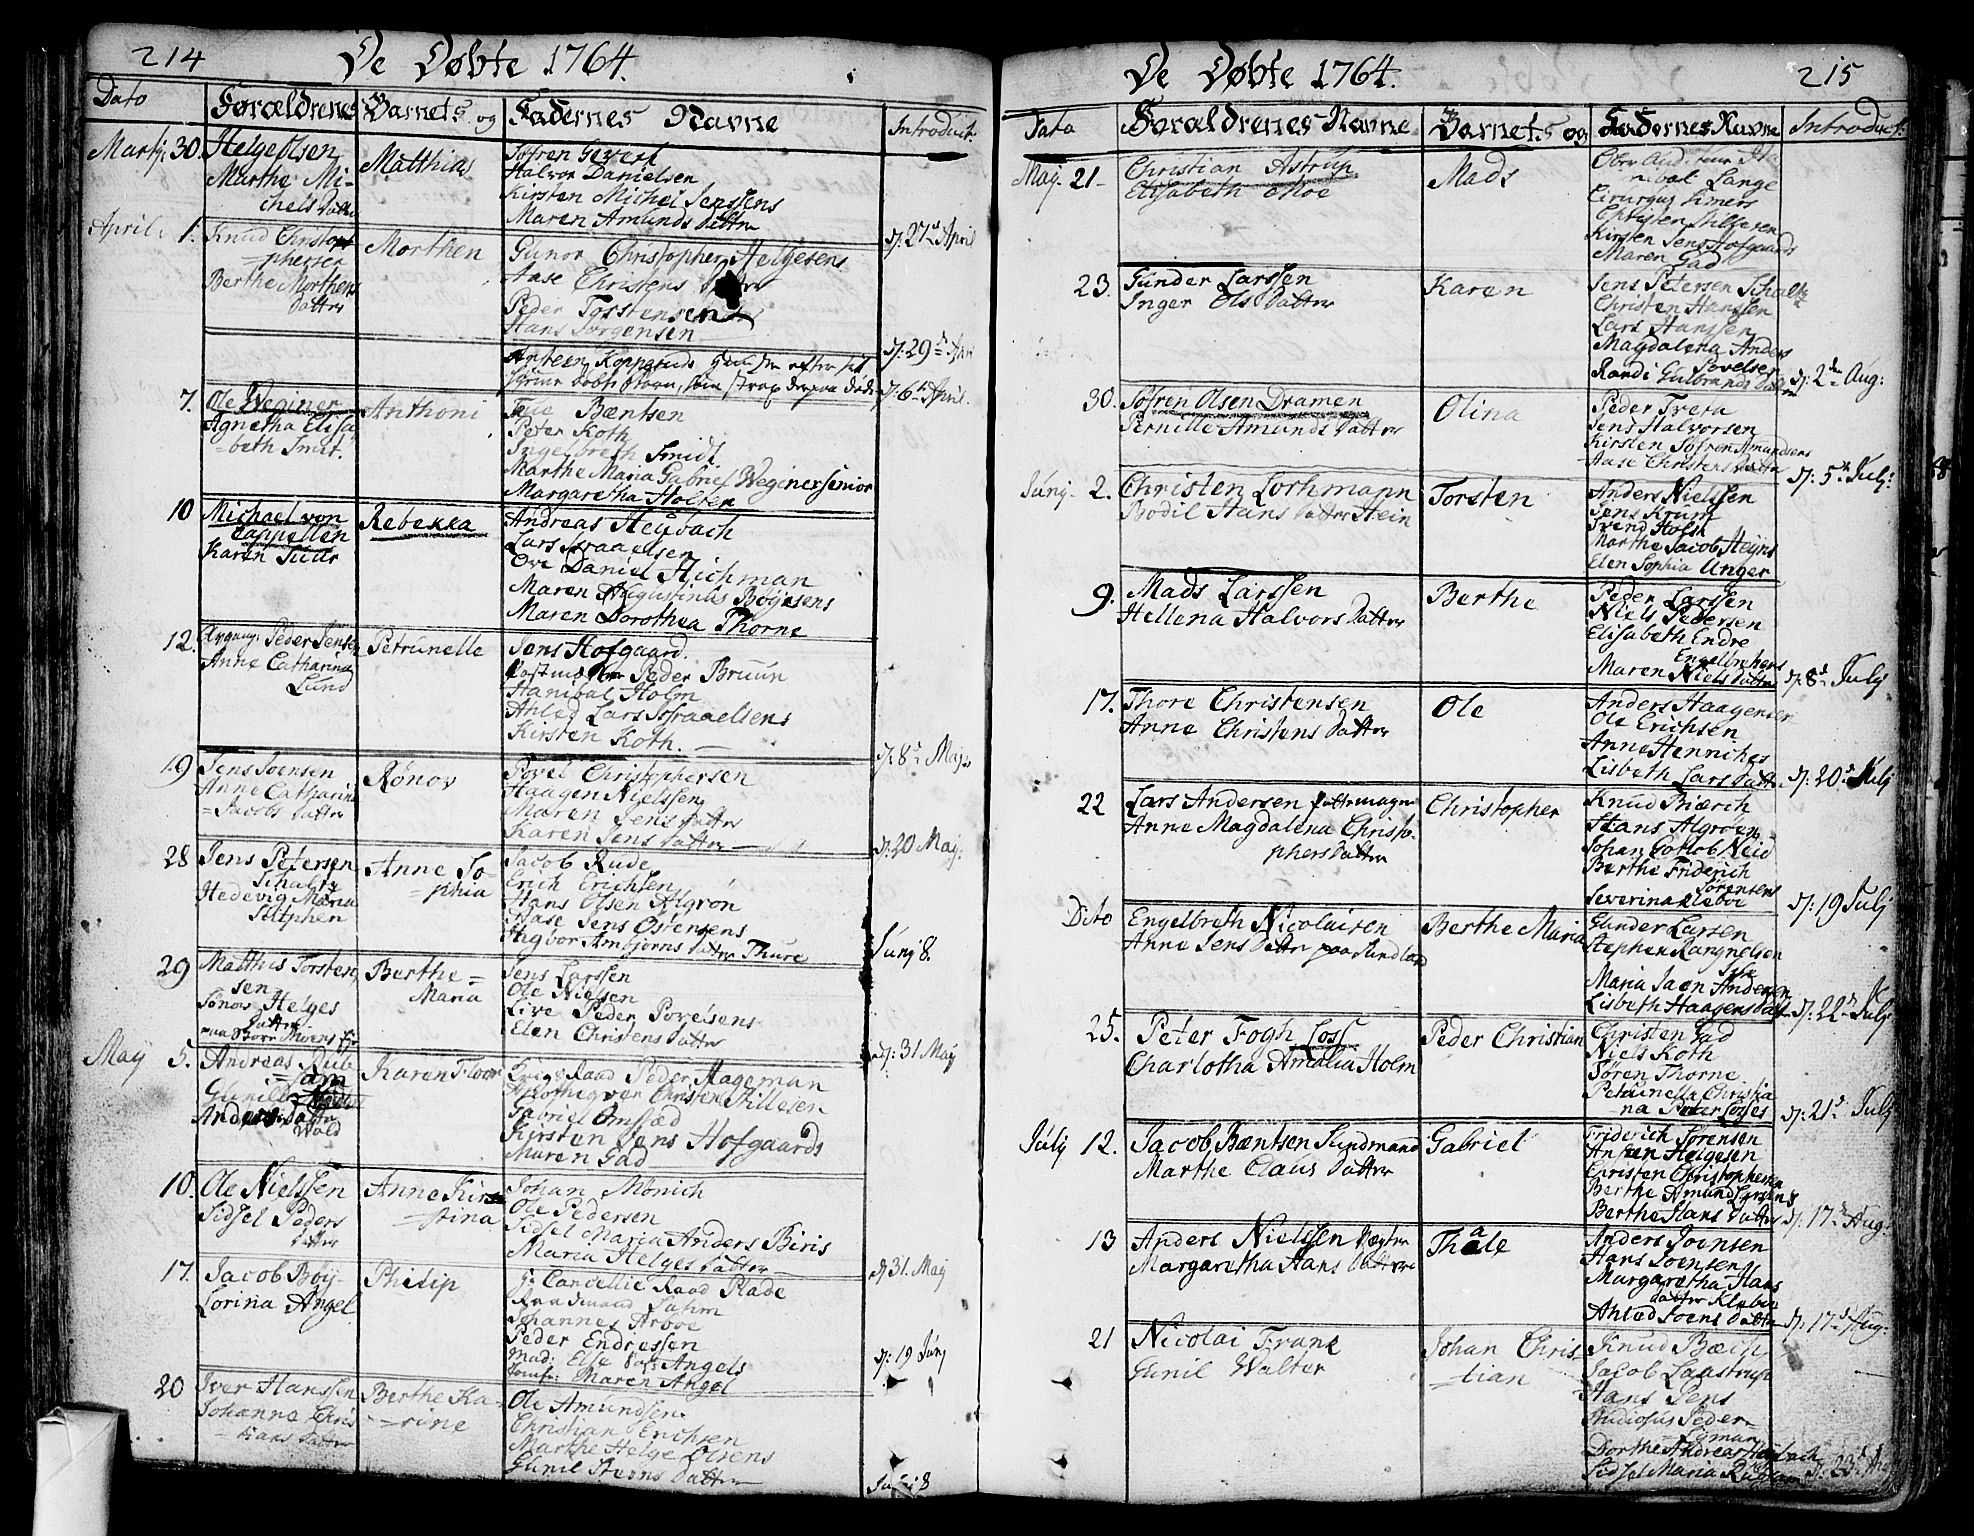 214 De Døbte 1764.
Dato Forældrenes Barnets og Fadernes Navne Introduct:
Martj: 30. Helge Olsen
Marthe Mi-
chels Datter
Matthias
Halvor Danielsen
Kirsten Michel Jenssens
Maren Amunds Datter
April: 1. Knud Christop
phersen
Berthe Morthens
Datter
Morthen
Gunor Christopher Helgesens
Aase Christens
Peder Torstensen
Hans Jørgensen
d: 27de April
d: 29de Apr
7. Ole Weginer
Agnetha Elisa
beth Smit.
Anthoni
Bæntsen
Peter Koth
Ingelbreth Smidt
Marthe Maria Gabriel Weginer senior
Margaretha Holter
d: 6te April.
10 Michael von
Cappellen
Karen
Rebekka
Andreas Heybach
Lars Israaelsen
Ove Daniel Hichman
Maren Augustinus Bøyesens
Maren Dorothea Thorne
12. Peder Jensen
Anne Catharina
Lund
Petrunelle
Jens Hofgaard.
Postmester Peder Bruun
Hanibal Holm
Ahled Lars Israaelsens
Kirsten Koth.
d: 8de Maj
19 Jens Joensen
Anne Catharina
Jacobs Datter
Rønov
Povel Christophersen
Haagen Nielssen
Maren Jens Datter
Karen Jens Datter
d: 20 Maj:
28 Jens Petersen
Schultz
Hedevig Maria
Stephen
Anne So-
phia
Jacob Rude
Erich Erichsen
Hans Olsen Algrøn
Aase Jens Østensens
Higvor Ambjørns Datter Thure
Junj 8.
29 Matthis Torsten
sen
Helges
Datter
Berthe
Maria
Jens Larssen
Ole Nielsen
Live Peder Povelsens
Elen Christens Datter
d: 31 Maj
May 5. Andreas Rub
Gunill
Anders Datter
Wold
Karen Floor
Raad Peder Hageman
Christen Stillesen
Gabriel Omsted
Kirsten Jens Hofgaards
Maren Gad
10. Ole Nielssen
Sidsel Peders
Datter
Anne Kir
stina
Johan Mønich
Ole Pedersen
Sidsel Maria Anders Biris
Maria Helges Datter
d 31. Maj
17. Jacob Bøy
Lorina Angel
Philip
Hr Cancellie Raad Plade
Raadmand
Johannes Arboe
Peder Endressen
Mad: Else Angels
Jomfr: Maren Angel
d: 19 Junj
20 Iver Hanssen
Johanna Chris
tians Datter
Berthe Ka-
trine
Ole Amundsen
Christian Erichsen
Marthe Helge Olsens
Gunil Steens Datter
Junj 8
De Døbte 1764. 215
Dato Forældrenes Navne Barnets og Fadernes Navne Introduct:
Maj. 21 Christian Astrup
Elisabeth Moe
Mads
Lange
Cirurgus
Christen Stillesen
Kirsten Jens Hofgaards
Maren Gad
23. Gunder Larssen
Inger Ols Datter
Karen
Jens Petersen Schultz
Christen Hanssen
Lars Hanssen
Magdalena Anders
Povelsen
Randi Gulbrands Datter
d: 2de Aug:
30. Søfren Olsen Dramen
Pernille Amunds Datter
Olina
Peder Tveta
Jens Halvorsen
Kirsten Søfren Amundsens
Aase Christens Datter
d: 5te Julj:
Junj. 2. Christen Lochmann
Bodil Hans Datter Hein
Torsten
Anders Nielssen
Jens Krum
Svend Holst
Marthe Jacob Heyns
Elen Sophia Unger
9. Mads Larssen
Hellena Halvors Datter
Berthe
Peder Larssen
Niels Pedersen
Elisabeth Endre
Engelbrehens
Maren Niels Datter
d: 8de Julj
17. Thore Christensen
Anne Christens Datter
Ole
Anders Haagensen
Ole Erichsen
Anne Henriches
Lisbeth Lars Datter
d: 20de Julj
22 Lars Andersen
Anne Magdalena Christo-
phers Datter
Christopher
Knud Biærch
Hans Algroen
Johan Gotlob Neid
Berthe Friderich
Sørensens
Severina Kleboe
d: 19 Julj
Dito Engelbreth Nicolaisen
Anne Jens Datter paa Sundland
Berthe Maria
Gunder Larsen
Stephen Rangnelsen
Maria Jacn Andersen
Lisbeth Haagens Datter
d: 22de Julj
25. Peter Fogh Loss
Charlotha Amalia Holm
Peder Christian
Christen Gad
Niels Koth
Søren Thorne
Petrunella Christia
na Peter Losses
d: 21de Julj
Julj 12. Jacob Bæntsen Sundmand
Marthe Claus Datter
Gabriel
Friderich Sørensen
Anten Helgesen
Christen Christophersen
Berthe Amund Larsens
Berthe Hans Datter
d: 17de Aug:
13 Anders Nielssen Vegter
Margaretha Hans Datter
Thale
Anders Joensen
Hans Joensen
Margaretha Hans
Datter Kleboe
Ahled Joens Datter
d: 17de Aug:
21 Nicolai Frane
Gunil Walter
Johan Chris-
tian
Knud Bæch
Jacob Laastrup
Hans Jens
Studiosus Peder
Nyman
Dorthe Andreas Heybach
Sidsel Maria
d: 23de Aug